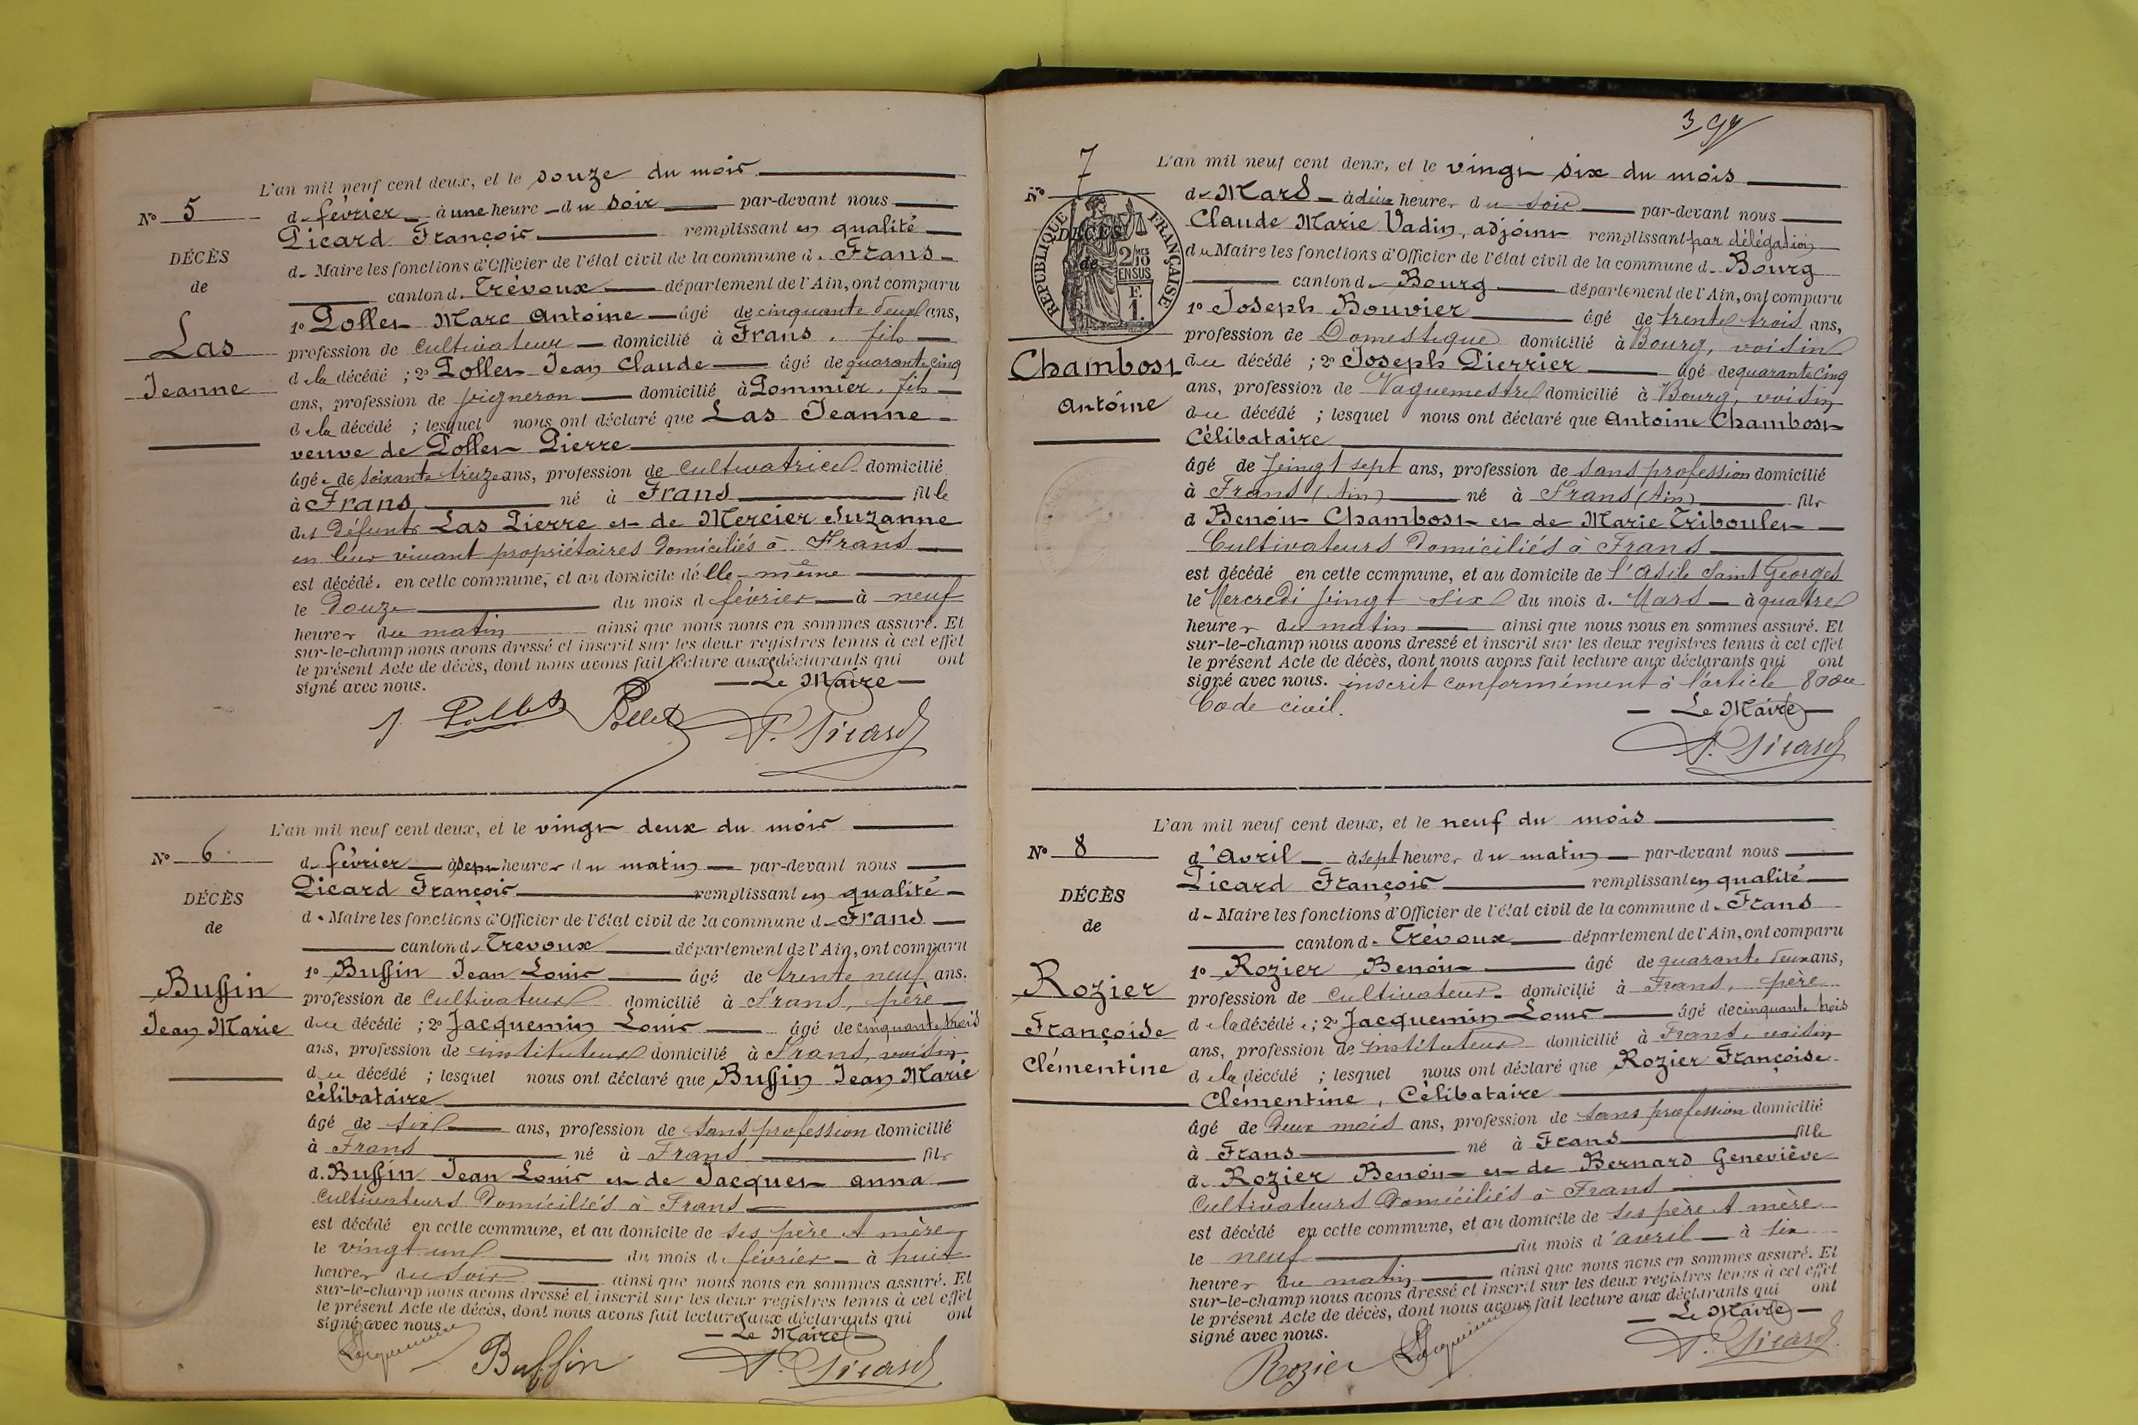 L'an mil neuf cent deux, et le douze du mois
N° 5
de février à une heure du soir par-devant nous
Picard François remplissant en qualité
DÉCÈS
de Maire les fonctions d'Officier de l'état civil de la commune de Frans
de
canton de Trévoux département de l'Ain, ont comparu
1° Pollet Marc Antoine âgé de cinquante deux ans,
Las
profession de cultivateur domicilié à Frans, fils
de la décédé ; 2° Pollet Jean Claude âgé de quarante cinq
Jeanne
ans, profession de vigneron domicilié à Pommier, fils
de la décédé ; lesquel nous ont déclaré que Las Jeanne
veuve de Pollet Pierre
âgé e de soixante treize ans, profession de cultivatrice domicilié
à Frans né à Frans fille
des défunts Las Pierre et de Mercier Suzanne
en leur vivant propriétaires domiciliés à Frans
est décédé e en cette commune, et au domicile de elle-même
le douze du mois de février à neuf
heures du matin ainsi que nous nous en sommes assuré. Et
sur-le-champ nous avons dressé et inscrit sur les deux registres tenus à cet effet
le présent Acte de décès, dont nous avons fait lecture aux déclarants qui ont
signé avec nous. Le Maire
J. Pollet Pollet F. Picard
L'an mil neuf cent deux, et le vingt deux du mois
N° 6
de février à sept heures du matin par-devant nous
Picard François remplissant en qualité
DÉCÈS
de Maire les fonctions d'Officier de l'état civil de la commune de Frans
de
canton de Trevoux département de l'Ain, ont comparu
1° Buffin Jean Louis âgé de trente neuf ans.
Buffin
profession de cultivateur domicilié à Frans, père
Jean Marie
du décédé ; 2° Jacquemin Louis âgé de cinquante trois
ans, profession de instituteur domicilié à Frans, voisin
du décédé ; lesquel nous ont déclaré que Buffin Jean Marie
célibataire
âgé de six ans, profession de sans profession domicilié
à Frans né à Frans fils
de Buffin Jean Louis et de Jacquet anna
cultivateurs domiciliés à Frans
est décédé en cette commune, et au domicile de ses père et mère
le vingt un du mois de février à huit
heures du soir ainsi que nous nous en sommes assuré. Et
sur-le-champ nous avons dressé et inscrit sur les deux registres tenus à cet effet
le présent Acte de décès, dont nous avons fait lecture aux déclarants qui ont
signé avec nous. Le Maire
Jacquemin Buffin F. Picard
L'an mil neuf cent deux, et le vingt six du mois
N° 7
de Mars à deux heures du soir par-devant nous
Claude Marie Vadin, adjoint remplissant par délégation
DÉCÈS
RÉPUBLIQUE FRANÇAISE
du Maire les fonctions d'Officier de l'état civil de la commune de Bourg
de
2/10
EN SUS
canton de Bourg département de l'Ain, ont comparu
F.
1.
1° Joseph Bouvier âgé de trente trois ans,
profession de Domestique domicilié à Bourg, voisin
Chambost
du décédé ; 2° Joseph Pierrier âgé de quarante cinq
ans, profession de Vaguemestre domicilié à Bourg, voisin
Antoine
du décédé ; lesquel nous ont déclaré que Antoine Chambost
Célibataire
âgé de vingt sept ans, profession de sans profession domicilié
à Frans (Ain) né à Frans (Ain) fils
d Benoit Chambost et de Marie Triboulet
Cultivateurs domiciliés à Frans
est décédé en cette commune, et au domicile de l'Asile Saint Georges
le Mercredi vingt six du mois de Mars à quatre
heures du matin ainsi que nous nous en sommes assuré. Et
sur-le-champ nous avons dressé et inscrit sur les deux registres tenus à cet effet
le présent Acte de décès, dont nous avons fait lecture aux déclarants qui ont
signé avec nous. inscrit conformément à l'article 80 du
Code civil. Le Maire
F. Picard
L'an mil neuf cent deux, et le neuf du mois
N° 8
d'Avril à sept heures du matin par-devant nous
Picard François remplissant en qualité
DÉCÈS
de Maire les fonctions d'Officier de l'état civil de la commune de Frans
de
canton de Trévoux département de l'Ain, ont comparu
1° Rozier Benoit âgé de quarante deux ans,
Rozier
profession de cultivateur domicilié à Frans, père
de la décédé e ; 2° Jacquemin Louis âgé de cinquante trois
Françoise
ans, profession de instituteur domicilié à Frans, voisin
Clémentine
de la décédé ; lesquel nous ont déclaré que Rozier Françoise
Clémentine, Célibataire
âgé de deux mois ans, profession de sans profession domicilié
à Frans né à Frans fille
de Rozier Benoit et de Bernard Geneviève
Cultivateurs domiciliés à Frans
est décédé en cette commune, et au domicile de ses père et mère
le neuf du mois d'avril à six
heures du matin ainsi que nous nous en sommes assuré. Et
sur-le-champ nous avons dressé et inscrit sur les deux registres tenus à cet effet
le présent Acte de décès, dont nous avons fait lecture aux déclarants qui ont
signé avec nous. Le Maire
Rozier Jacquemin F. Picard